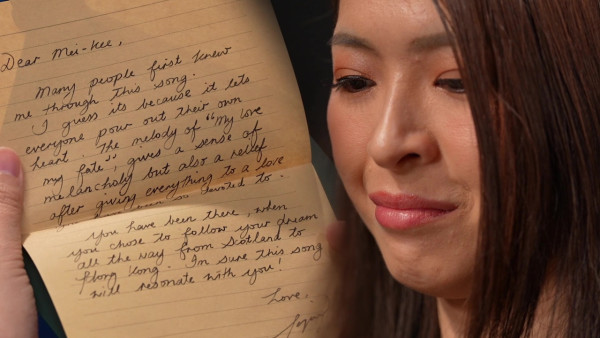 Dear Mei-kee,
Many people first knew
me through this song.
I guess its because it lets
everyone pour out their own
heart. The melody of "My love
my fate", gives a sense of
melancholy but also a relief
after giving everything to a love
devoted to.
you have been there, when
you chose to follow your dream
all the way from Scotland to
Hong Kong. Im sure this song
will resonate with you!
Love,